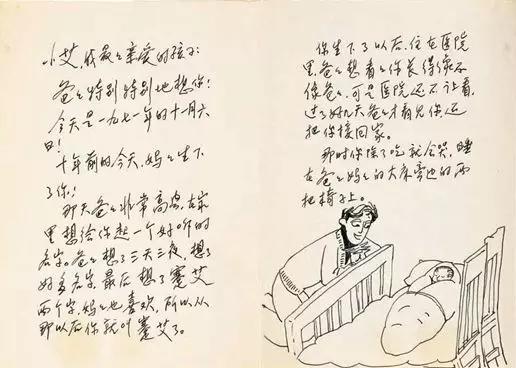 小艾，我最々亲爱的孩子：
爸々特别特别地想你！
今天是一九七一年的十一月六
日！
十年前的今天，妈々生下
了你！
那天爸々非常高兴，在家
里想给你起一个好听的
名字。爸々想了三天三夜，想了
好多名字，最后想了蹇艾
两个字，妈々也喜欢，所以从
那以后你就叫蹇艾了。
你生下了以后，住在医院
里，爸々想看々你长得像不
像爸々，可是医院还不让看，
过了好几天爸々才看见你，还
把你接回家。
那时你除了吃就会哭，睡
在爸々妈々的大床旁边的两
把椅子上。